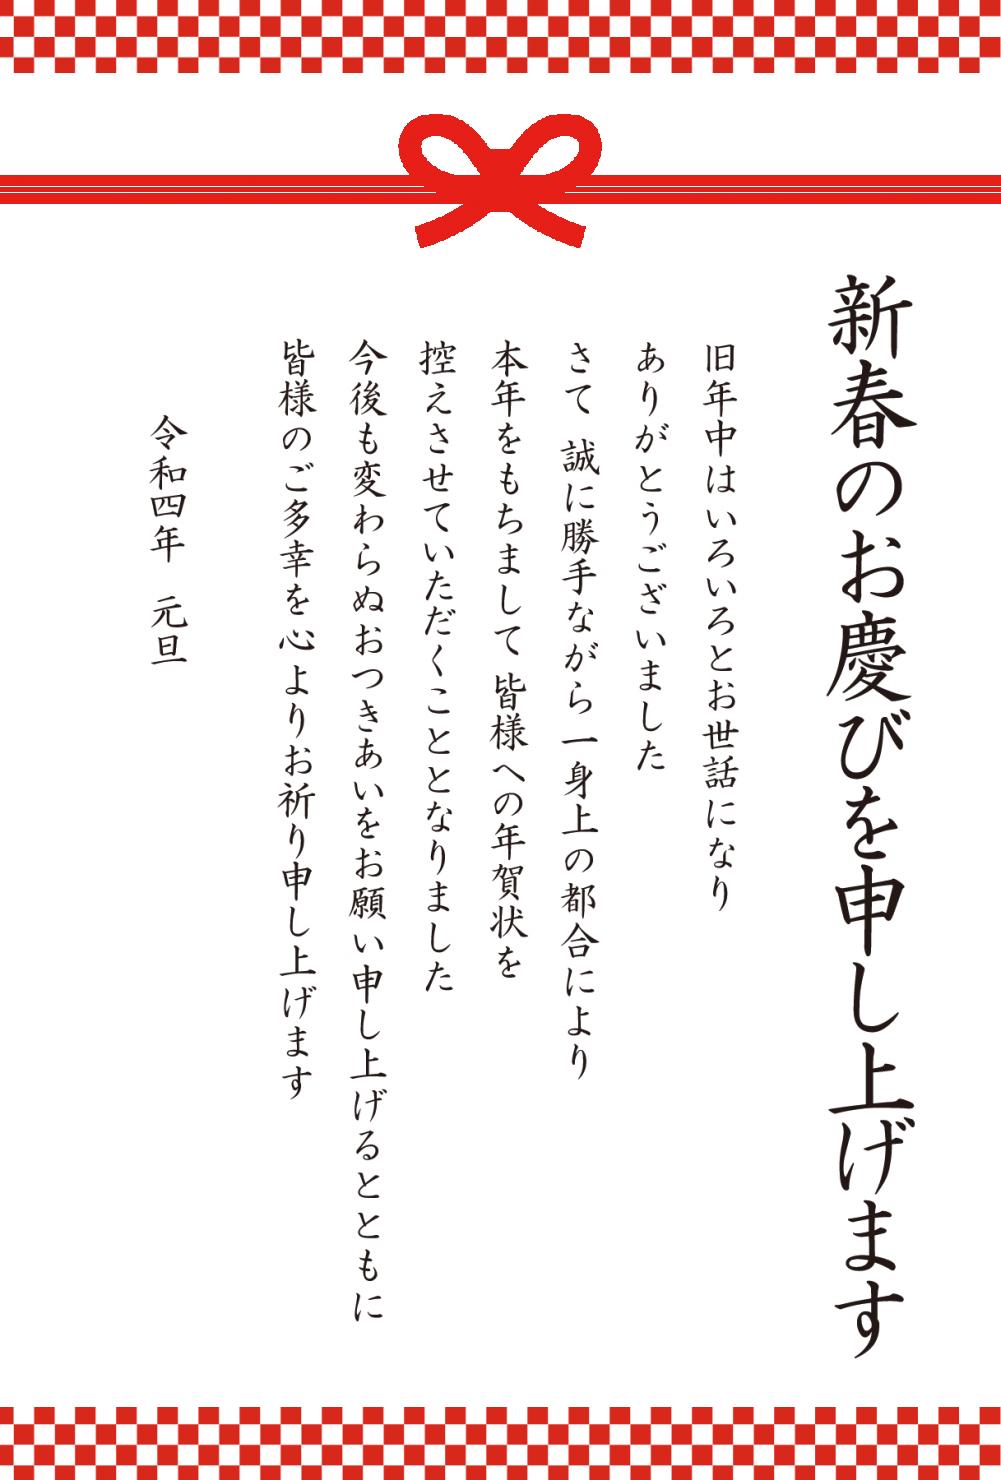 新春のお慶びを申し上げます
旧年中はいろいろとお世話になり
ありがとうございました
さて 誠に勝手ながら一身上の都合により
本年をもちまして 皆様への年賀状を
控えさせていただくこととなりました
今後も変わらぬおつきあいをお願い申し上げるとともに
皆様のご多幸を心よりお祈り申し上げます
令和四年 元旦